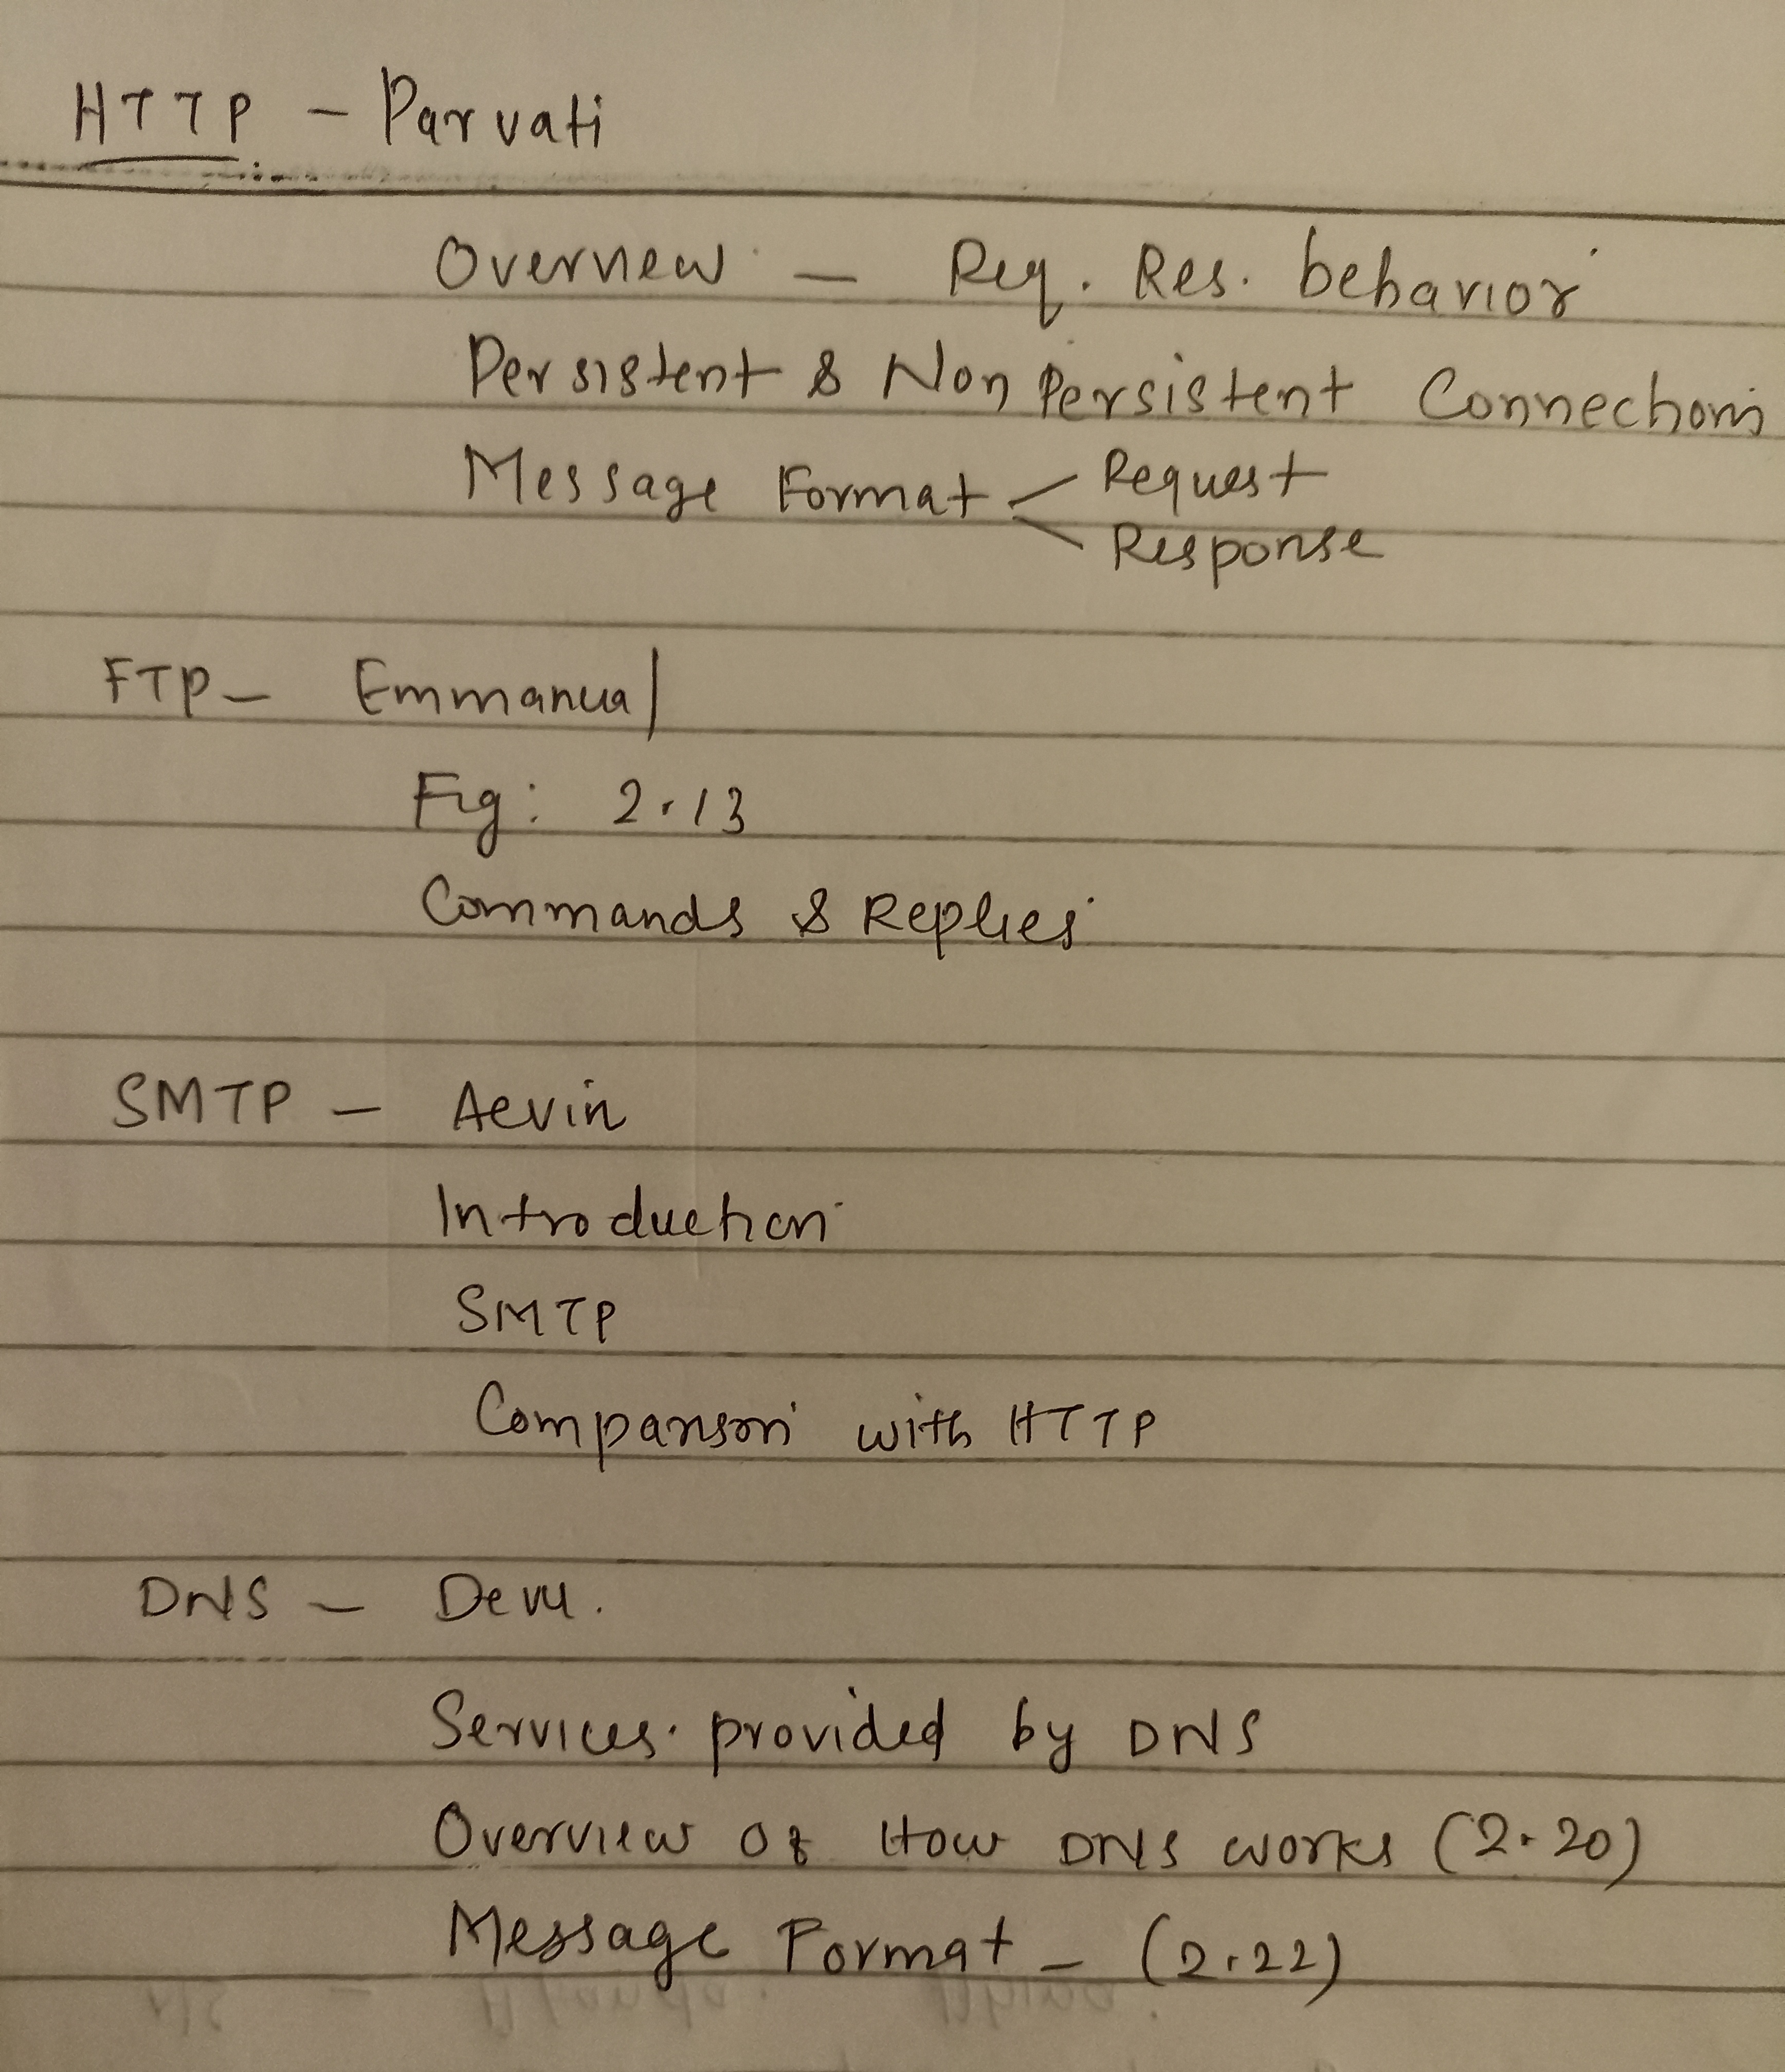 HTTP - Parvati
Overview - Req. Res. behavior
Persistent & Non Persistent Connections
Message Format < Request
Response
FTP - Emmanual
Fig: 2.13
Commands & Replies
SMTP - Aevin
Introduction
SMTP
Comparison with HTTP
DNS - Devu.
Services provided by DNS
Overview of How DNS works (2.20)
Message Format - (2.22)